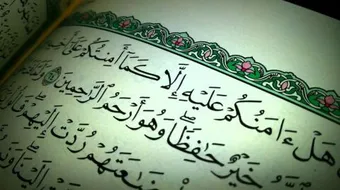 هَلْ ءَامَنُكُمْ عَلَيْهِ إِلَّا كَمَآ أَمِنتُكُمْ عَلَىٰٓ
خَيْرٌ حَٰفِظًا وَهُوَ أَرْحَمُ ٱلرَّٰحِمِينَ
بِضَٰعَتَهُمْ رُدَّتْ إِلَيْهِمْ قَالُوا۟
إِلَيْنَا